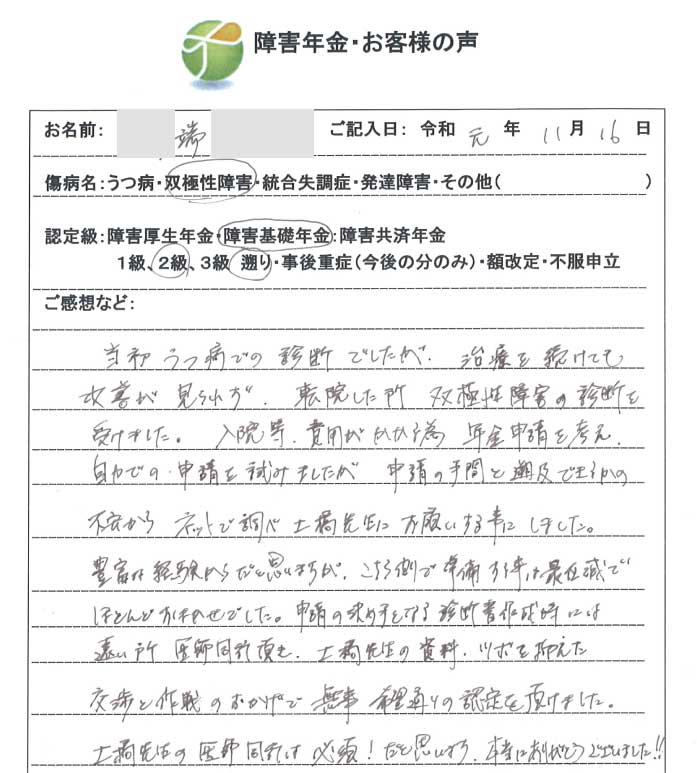 障害年金・お客様の声
お名前: 端 ご記入日: 令和 元 年 11月 16 日
傷病名:うつ病・双極性障害・統合失調症・発達障害・その他( )
認定級:障害厚生年金・障害基礎年金:障害共済年金
1級、2級、3級 遡り・事後重症(今後の分のみ)・額改定・不服申立
ご感想など:
当初 うつ病での 診断 でしたが、治療を続けても
改善が見られず、転院した所 双極性障害の診断を
受けました。入院等、費用がかかる為 年金申請を考え、
自力での申請を試みましたが 申請の手間と遡及できるかの
不安から ネットで調べ 土橋先生にお願いする事にしました。
豊富な経験からだと思いますが、こちら側で準備する事は最低減で
ほとんどおまかせでした。申請の決め手となる診断書作成時には
遠い所 医師同行頂き、土橋先生の資料、ツボを抑えた
交渉と作戦のおかげで 無事 希望通りの認定を頂けました。
土橋先生の医師同行は 必須!だと思います、本当にありがとうございました!!